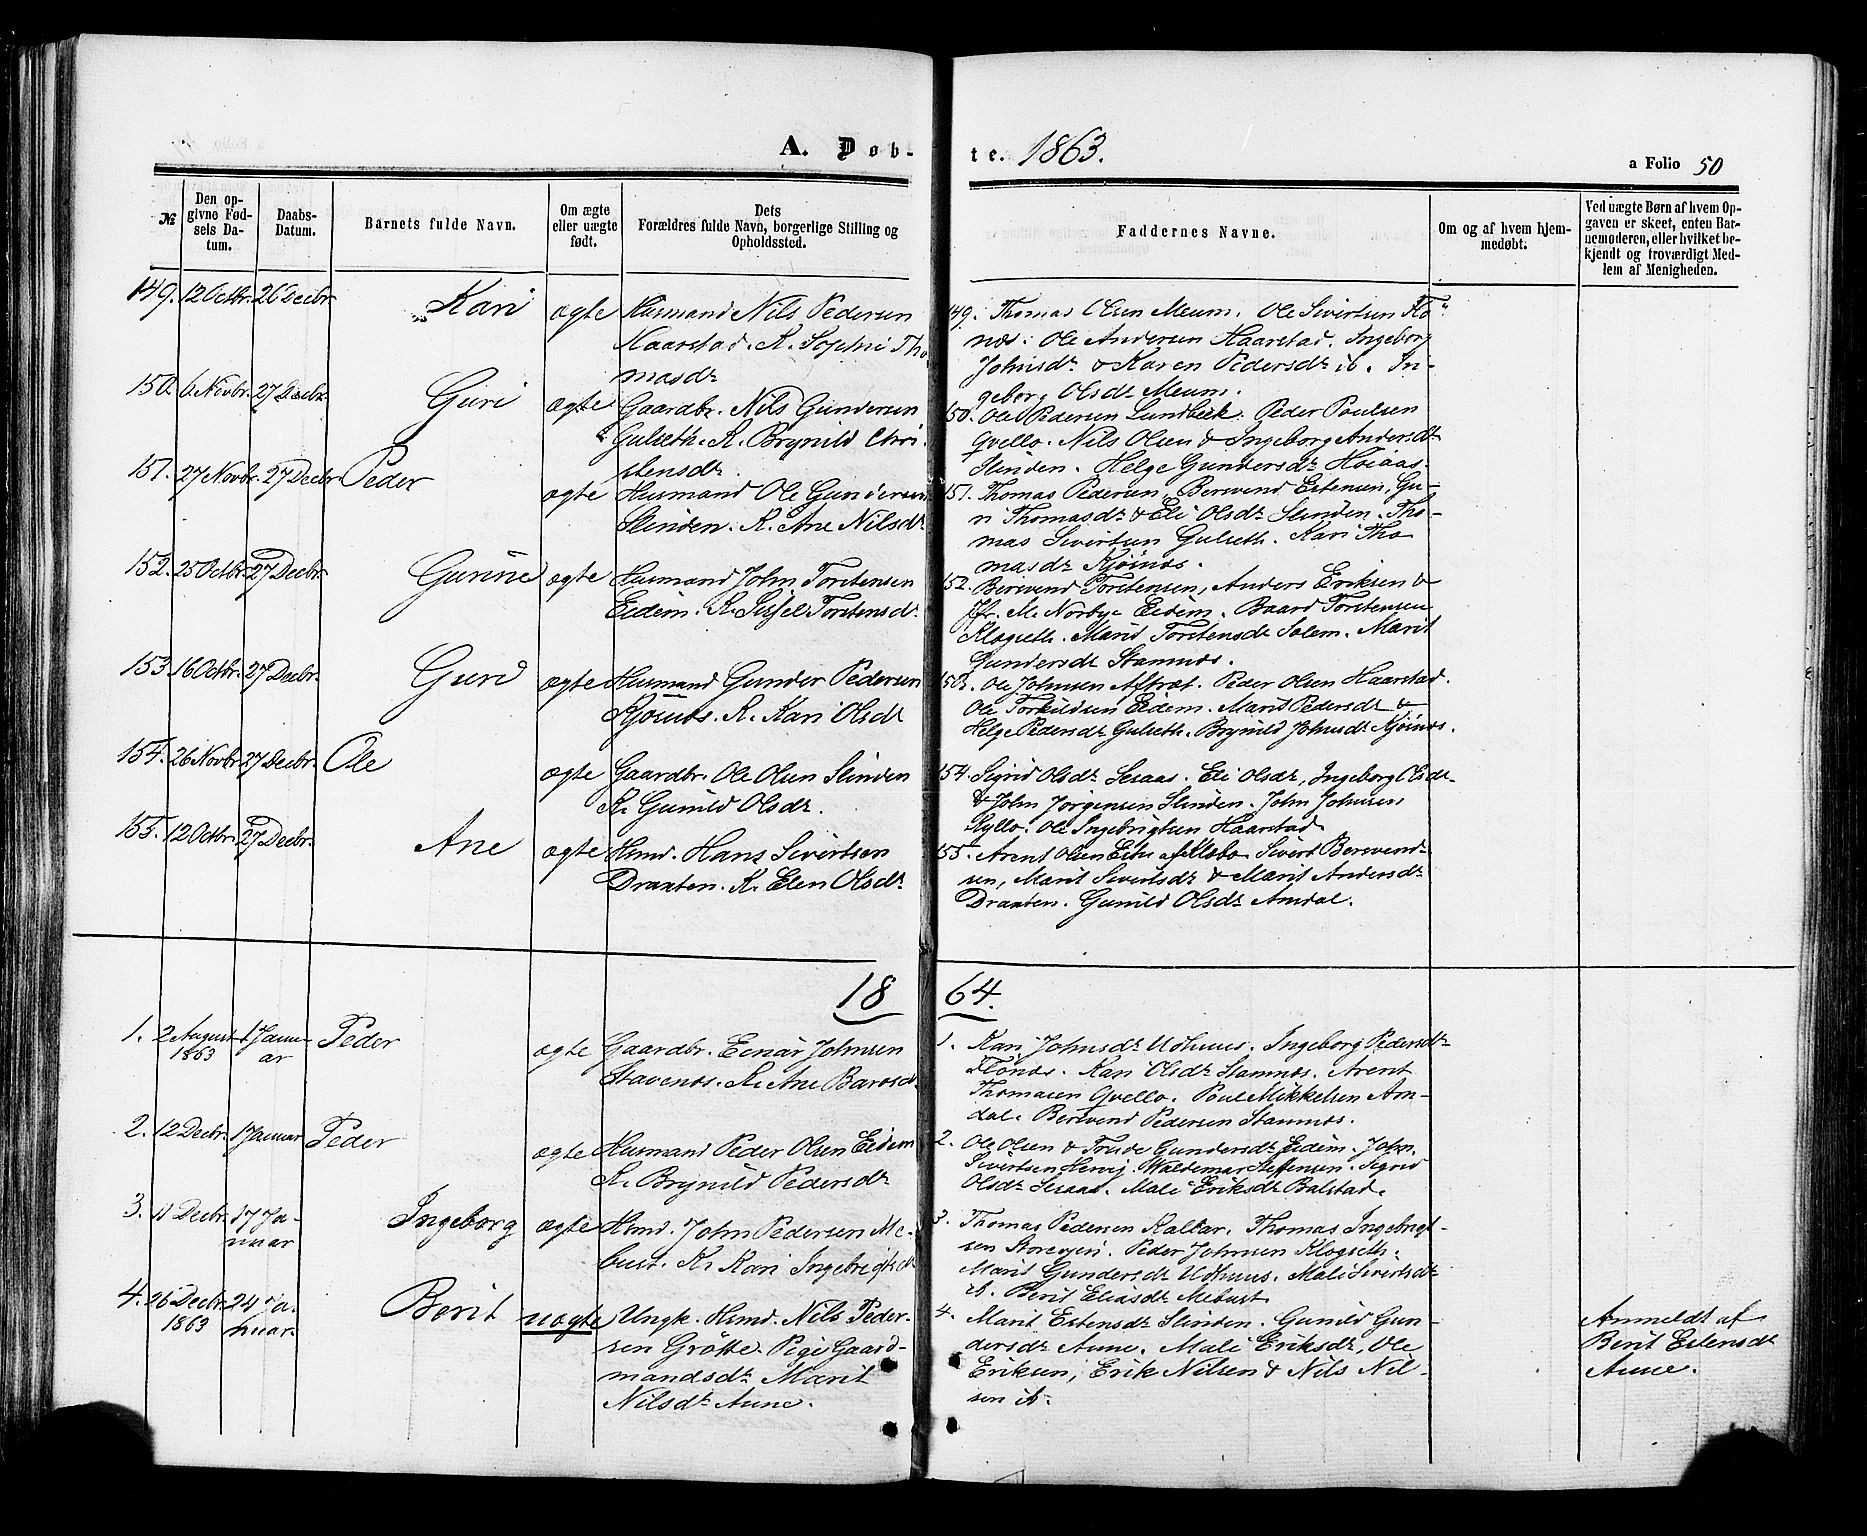 A. Døb-
te. 1863.
a Folio 50
№
Den op-
givne Fød-
sels Da-
tum.
Daabs-
Datum.
Barnets fulde Navn.
Om ægte
eller uægte
født.
Dets
Forældres fulde Navn, borgerlige Stilling og
Opholdssted.
Faddernes Navne.
Om og af hvem hjem-
medøbt.
Ved uægte Børn af hvem Op-
gaven er skeet, enten Bar-
nemoderen, eller hvilket be-
kjendt og troværdigt Med-
lem af Menigheden.
149. 12 Octbr. 26 Decbr. Kari ægte Husmand Nils Pedersen
Haarstad. K. Sophie Tho
masdr
149. Thomas Olsen Meum. Ole Sivertsen Flø-
næs. Ole Andersen Haarstad. Ingeborg
Johnsdr & Karen Pedersdr ib. In-
geborg Olsdr Meum.
150. 6 Novbr. 27 Decbr. Guri ægte Gaardbr. Nils Gundersen
Gulseth. K. Brynild Chri-
stensdr.
150. Ole Pedersen Lundberk. Peder Poulsen
Qvello. Nils Olsen & Ingeborg Andersdr
Slinden. Helge Gundersdr Høiaas.
151. 27 Novbr. 27 Decbr Peder ægte Husmand Ole Gundersen
Slinden. K. Ane Nilsdr
151. Thomas Pedersen, Berevend Estensen, Gu-
ri Thomasdr & Eli Olsdr Slinden. Tho-
mas Sivertsen Gulseth. Kari Tho
masdr Kjøsnæs.
152. 25 Octbr. 27 Decbr. Gurine ægte Husmand John Torstensen
Eidem. K. Sissel Torstensdr.
152. Berevend Torstensen, Anders Eriksen &
Jfr. M. Norbye Eidem. Baard Torstensen
Klogseth. Marit Torstensdr Solem. Marit
Gundersdr Stamnæs.
153. 16 Octbr. 27 Decbr. Guri ægte Husmand Gunder Pedersen
Kjøsnæs. K. Kari Olsdr
153. Ole Johnsen Aftret. Peder Olsen Haarstad.
Ole Torkildsen Eidem. Marit Pedersdr &
Helge Pedersdr Gulseth. Brynild Johnsdr Kjøsnæs.
154. 26 Novbr. 27 Decbr. Ole ægte Gaardbr. Ole Olsen Slinden
K. Gunild Olsdr.
154. Sigrid Olsdr Sesaas. Eli Olsdr, Ingeborg Olsdr
& John Jørgensen Slinden. John Johnsen
Kyllo. Ole Ingebrigtsen Haarstad.
155. 12 Octbr. 27 Decbr. Ane ægte Hsmd. Hans Sivertsen
Draxten. K. Elen Olsdr
155. Arent Olsen Sivert Berevend-
sen, Marit Sivertsdr & Marit Andersdr
Draxten. Gunild Olsdr Amdal.
18 64.
1. 2 August
1863 1 Janu-
ar Peder ægte Gaardbr. Einar Johnsen
Stavenæs. K. Ane Bardsdr
1. Kari Johnsdr Udhuus. Ingeborg Pedersdr
Flønæs. Kari Olsdr Stamnæs. Arent
Thomasen Qvello. Poul Mikkelsen Am-
dal. Berevend Pedersen Stamnæs.
2. 12 Decbr. 1 Januar Peder ægte Husmand Peder Olsen Eidem
K. Brynild Pedersdr
2. Ole Olsen & Trude Gundersdr Eidem. John
Sivertsen Hervig. Waldemar Steffensen. Sigrid
Olsdr Sesaas. Mali Eriksdr Balstad.
3. 11 Decbr. 17 Ja-
nuar Ingeborg ægte Hsmd. John Pedersen Me-
bust. K. Kari Ingebrigtsdr
3. Thomas Pedersen Kalkar. Thomas Ingebrigt-
sen Storevjen. Peder Johnsen Klogseth.
Marit Gundersdr Udhuus. Mali Sivertsdr
ib. Berit Eliasdr Mebust
4. 26 Decbr.
1863 24 Ja-
nuar. Berit uægte Ungk. Hsmd. Nils Peder-
sen Grøtte. Pige Gaard-
mandsdr. Marit
Nilsdr Aune.
4. Marit Estensdr Slinden. Gunild Gun-
dersdr Aune. Mali Eriksdr, Ole
Eriksen, Erik Nilsen & Nils Nil-
sen ib.
Anmeldt af
Berit Estensdr
Aune.